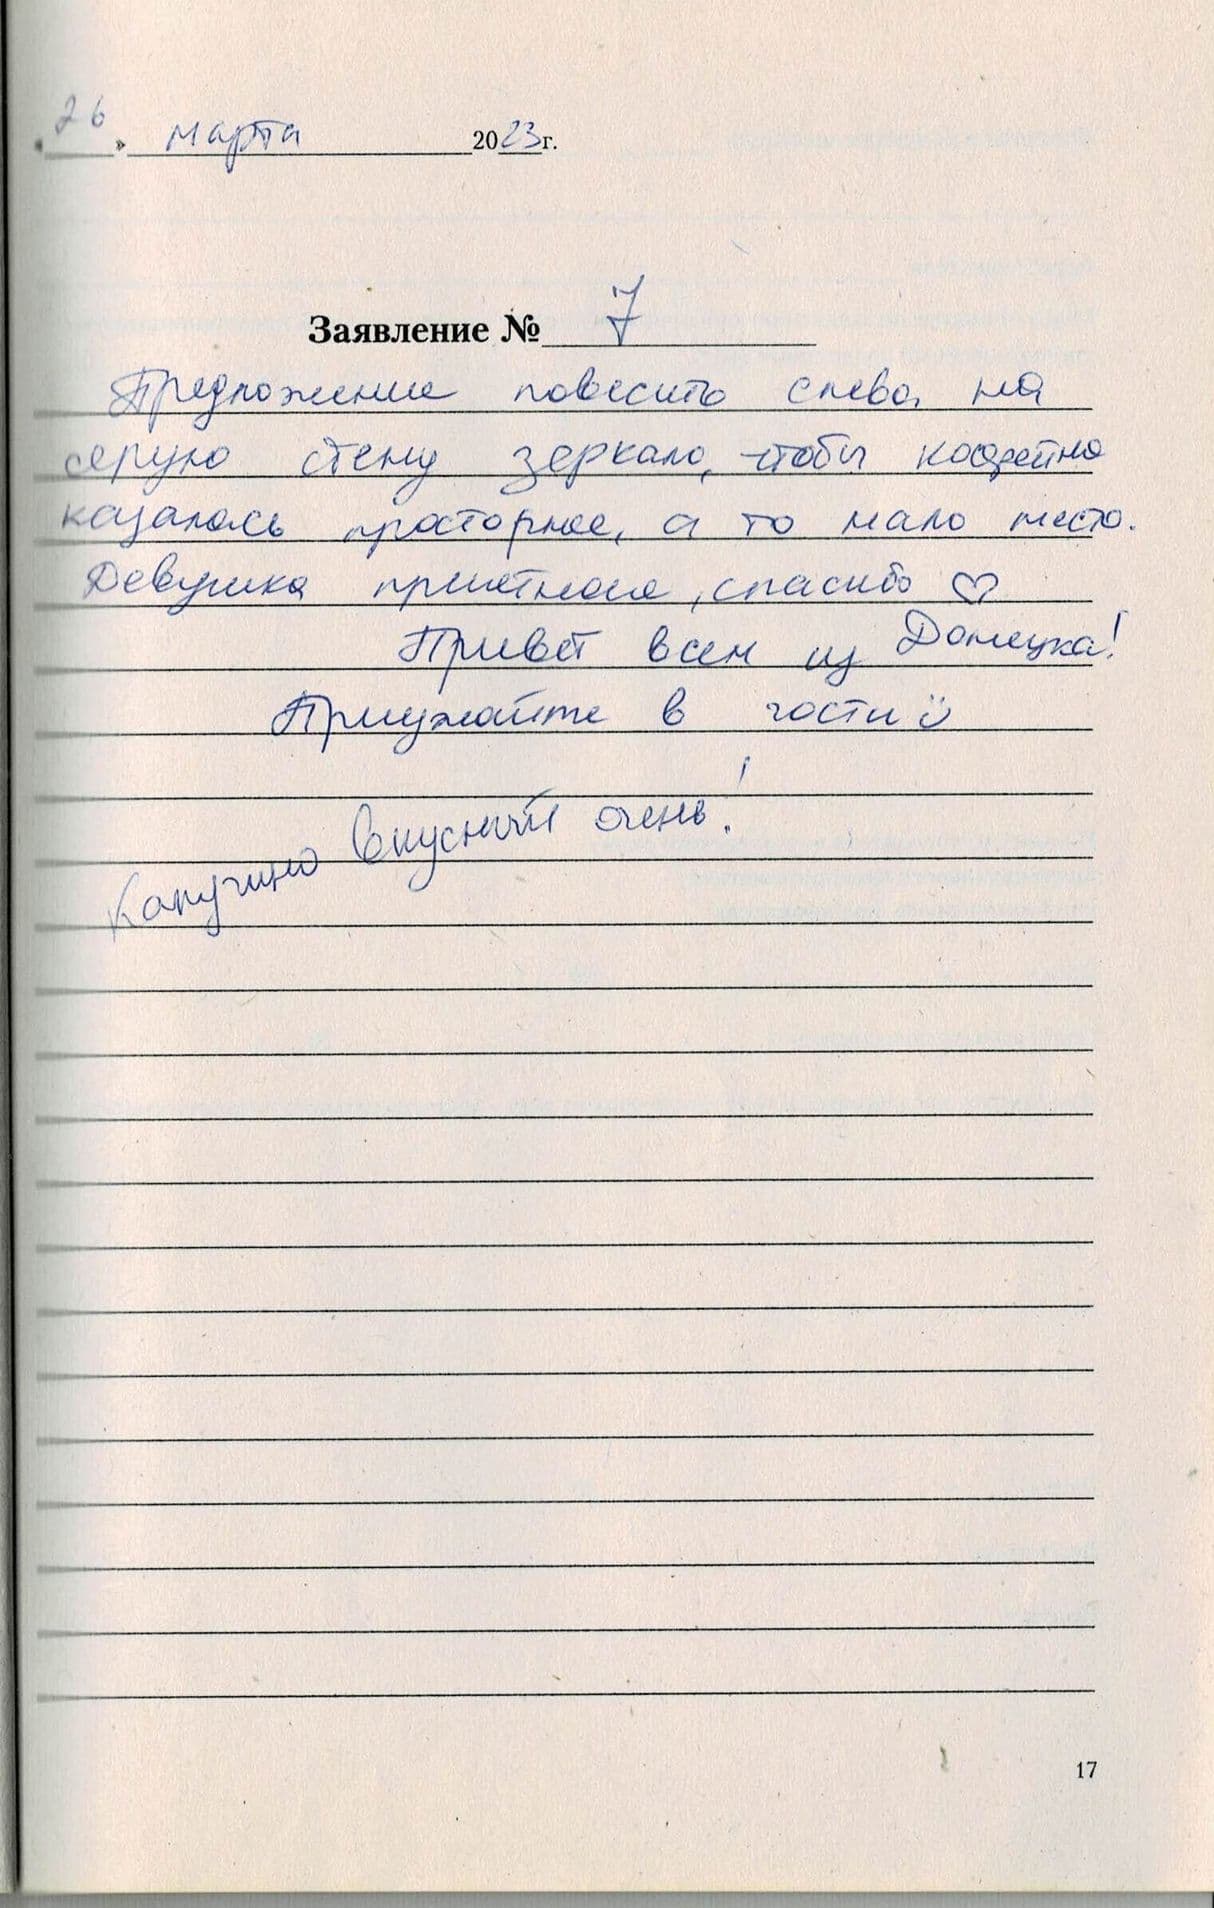 «26» марта 2023г.
Заявление № 7
Предложение повесить слева на
серую стену зеркало, чтобы кофейня
казалась просторнее, а то мало место.
Девушка приятная, спасибо ♡
Привет всем из Донецка!
Приезжайте в гости
Капучино вкусный очень!
17